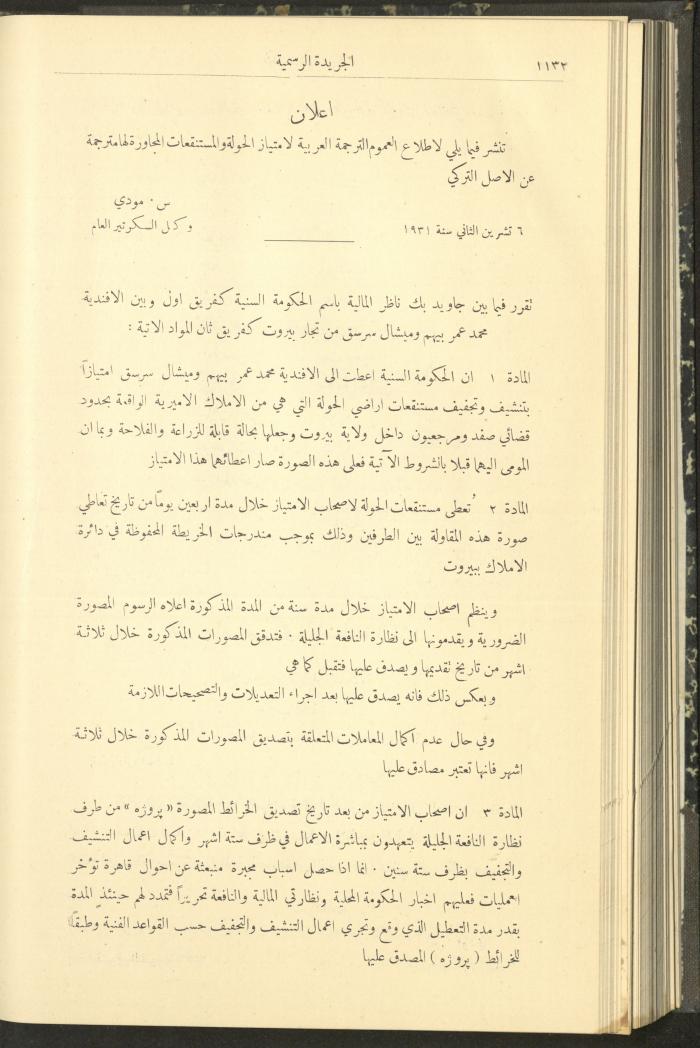 ١١٣٢
الجريدة الرسمية
اعلان
تنشر فيما يلي لاطلاع العموم الترجمة العربية لامتياز الحولة والمستنقعات المجاورة لها مترجمة
عن الاصل التركي
س . مودي
٦ تشرين الثاني سنة ١٩٣١
وكيل السكرتير العام
تقرر فيما بين جاويد بك ناظر المالية باسم الحكومة السنية كفريق اول وبين الافندية
محمد عمر بيهم وميشال سرسق من تجار بيروت كفريق ثان المواد الاتية :
المادة ١ ان الحكومة السنية اعطت الى الافندية محمد عمر بيهم وميشال سرسق امتيازاً
بتنشيف وتجفيف مستنقعات اراضي الحولة التي هي من الاملاك الاميرية الواقعة بحدود
قضائي صفد ومرجعيون داخل ولاية بيروت وجعلها بحالة قابلة للزراعة والفلاحة وبما ان
المومى اليهما قبلا بالشروط الآتية فعلى هذه الصورة صار اعطائهما هذا الامتياز
المادة ٢ تُعطى مستنقعات الحولة لاصحاب الامتياز خلال مدة اربعين يوماً من تاريخ تعاطي
صورة هذه المقاولة بين الطرفين وذلك بموجب مندرجات الخريطة المحفوظة في دائرة
الاملاك ببيروت
وينظم اصحاب الامتياز خلال مدة سنة من المدة المذكورة اعلاه الرسوم المصورة
الضرورية ويقدمونها الى نظارة النافعة الجليلة . فتدقق المصورات المذكورة خلال ثلاثة
اشهر من تاريخ تقديمها ويصدق عليها فتقبل كما هي
وبعكس ذلك فانه يصدق عليها بعد اجراء التعديلات والتصحيحات اللازمة
وفي حال عدم اكمال المعاملات المتعلقة بتصديق المصورات المذكورة خلال ثلاثة
اشهر فانها تعتبر مصادق عليها
المادة ٣ ان اصحاب الامتياز من بعد تاريخ تصديق الخرائط المصورة « پروژه » من طرف
نظارة النافعة الجليلة يتعهدون بمباشرة الاعمال في ظرف ستة اشهر واكمال اعمال التنشيف
والتجفيف بظرف ستة سنين . انما اذا حصل اسباب مجبرة منبعثة عن احوال قاهرة تؤخر
العمليات فعليهم اخبار الحكومة المحلية ونظارتي المالية والنافعة تحريراً فتمدد لهم حينئذٍ المدة
بقدر مدة التعطيل الذي وقع وتجري اعمال التنشيف والتجفيف حسب القواعد الفنية وطبقاً
للخرائط ( پروژه ) المصدق عليها